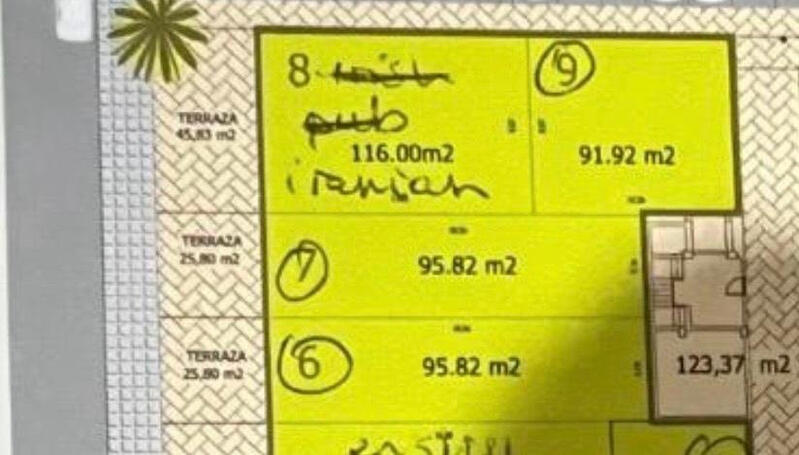 8 irish
9
pub
TERRAZA
45,83 m2
116.00m2
91.92 m2
iranian
TERRAZA
25,80 m2
7
95.82 m2
TERRAZA
25,80 m2
6
95.82 m2
123,37 m2